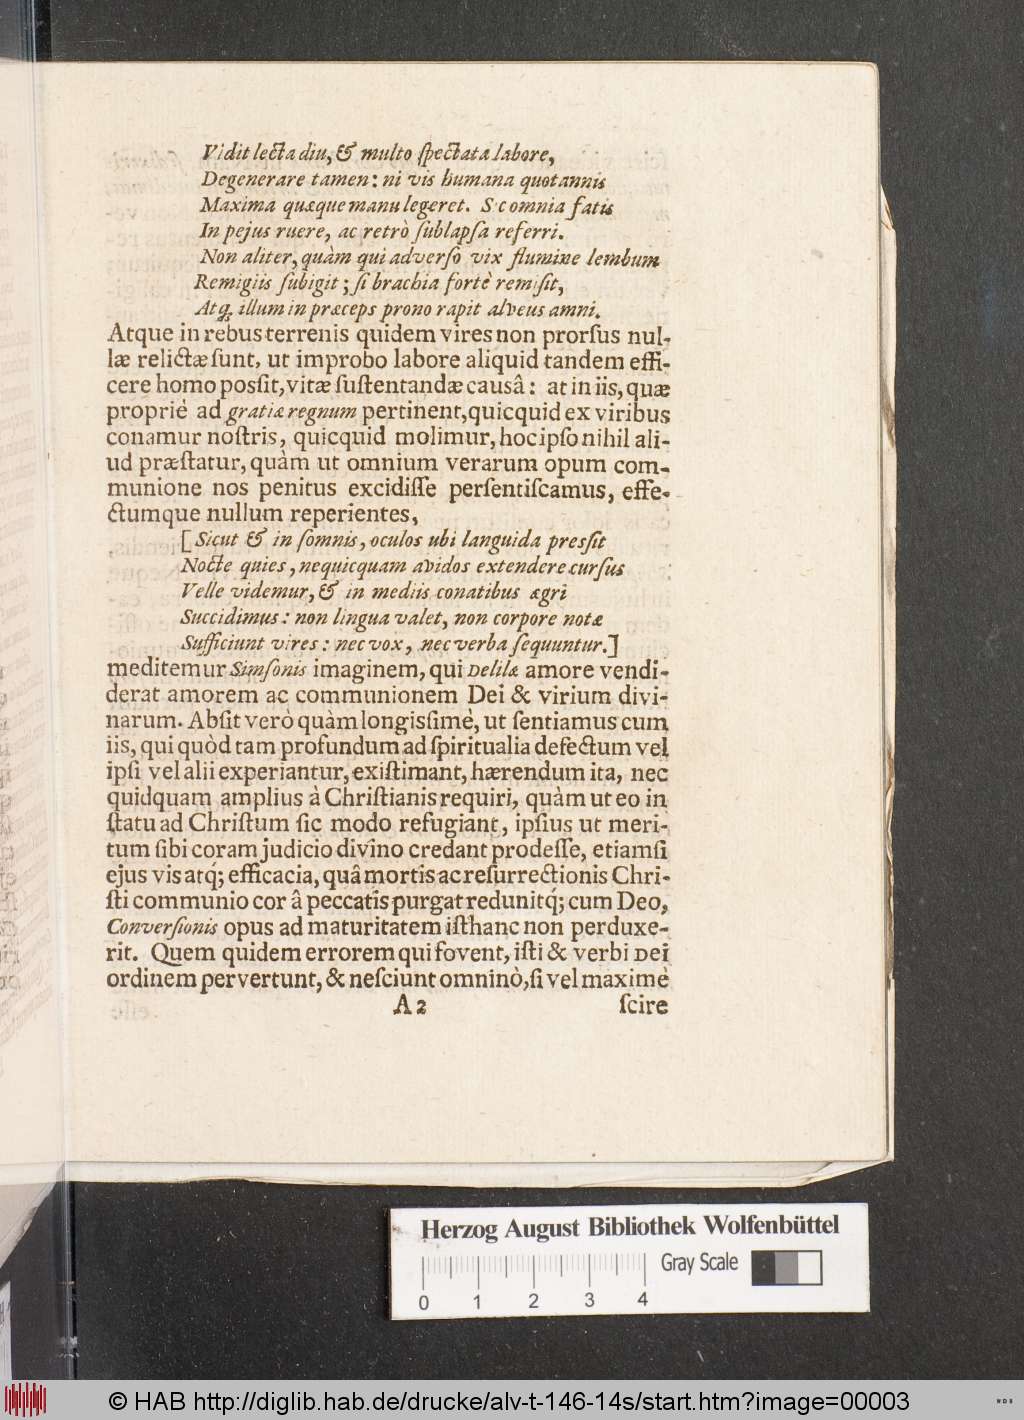 Vidit lecta diu, & multo ſpectata labore,
Degenerare tamen: ni vis humana quotannis
Maxima quæque manu legeret. S c omnia fatis
In pejus ruere, ac retrò ſublapſa referri.
Non aliter, quàm qui adverſo vix flumine lembum
Remigiis ſubigit; ſi brachia fortè remiſit,
Atq; illum in præceps prono rapit alveus amni.
Atque in rebus terrenis quidem vires non prorſus nul-
læ relictæ ſunt, ut improbo labore aliquid tandem effi-
cere homo poſſit, vitæ ſuſtentandæ causâ: at in iis, quæ
propriè ad gratiæ regnum pertinent, quicquid ex viribus
conamur noſtris, quicquid molimur, hoc ipſo nihil ali-
ud præſtatur, quàm ut omnium verarum opum com-
munione nos penitus excidiſſe perſentiſcamus, effe-
ctumque nullum reperientes,
[Sicut & in ſomnis, oculos ubi languida preſſit
Nocte quies, nequicquam avidos extendere curſus
Velle videmur, & in mediis conatibus ægri
Succidimus: non lingua valet, non corpore notæ
Sufficiunt vires: nec vox, nec verba ſequuntur.]
meditemur Simſonis imaginem, qui Delilæ amore vendi-
derat amorem ac communionem Dei & virium divi-
narum. Abſit verò quàm longiſſimè, ut ſentiamus cum
iis, qui quòd tam profundum ad ſpiritualia defectum vel
ipſi vel alii experiantur, exiſtimant, hærendum ita, nec
quidquam amplius à Chriſtianis requiri, quàm ut eo in
ſtatu ad Chriſtum ſic modo refugiant, ipſius ut meri-
tum ſibi coram judicio divino credant prodeſſe, etiamſi
ejus vis atq́; efficacia, quâ mortis ac reſurrectionis Chri-
ſti communio cor â peccatis purgat redunitq́; cum Deo,
Converſionis opus ad maturitatem iſthanc non perduxe-
rit. Quem quidem errorem qui fovent, iſti & verbi Dei
ordinem pervertunt, & neſciunt omninò, ſi vel maximè
A 2 ſcire
Herzog August Bibliothek Wolfenbüttel
Gray Scale
0 1 2 3 4
© HAB http://diglib.hab.de/drucke/alv-t-146-14s/start.htm?image=00003